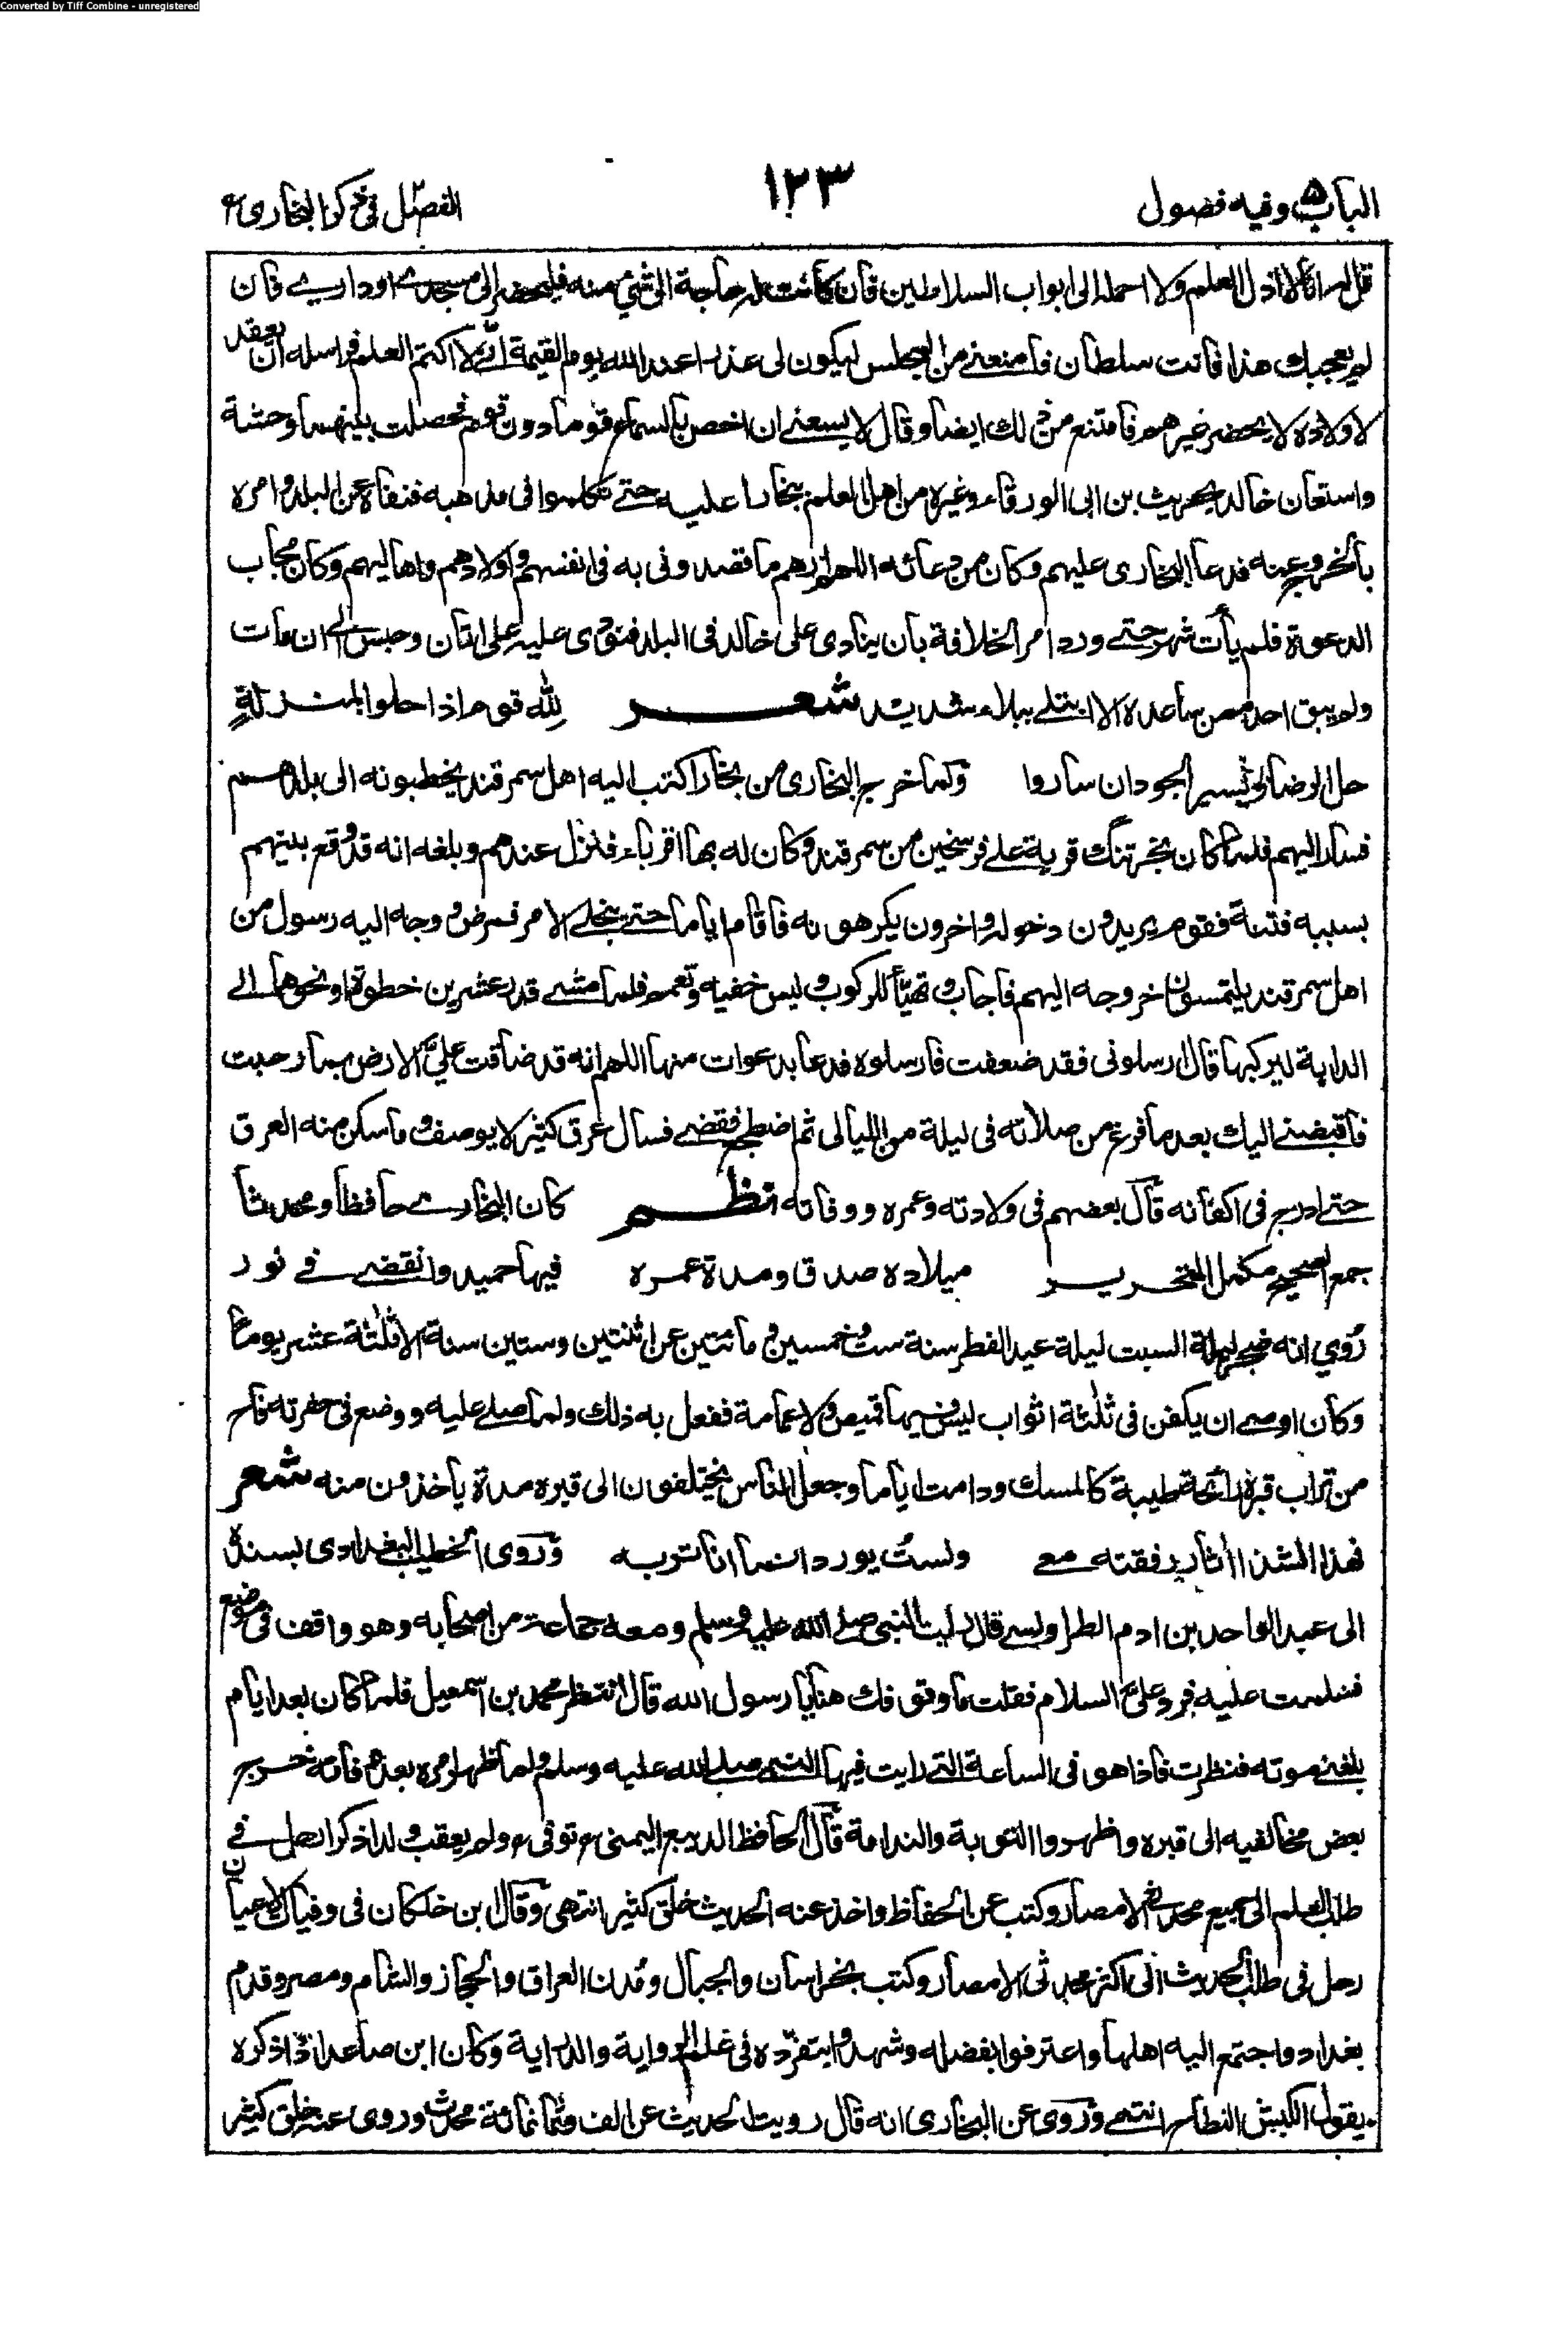 Converted by Tiff Combine - unregistered
الباب ٥ وفيه فصول
١٢٣
الفصل في ذكر البخاري
قل له انا لا اذل العلم ولا احمله الى ابواب السلاطين فان كانت له حاجة الى شئ منه فليحضر الى مسجدى او دارى فان
لم يعجبك هذا فانت سلطان فامنعنى من المجلس ليكون لى عذر عند الله يوم القيمة انى لا اكتم العلم فراسله ان يعقد
لاولاده لا يحضر غيرهم فامتنع من ذلك ايضا وقال لا يسعنى ان اخص بالسماع قوما دون قوم فحصلت بينهما وحشة
واستعان خالد بحريث بن ابى الورقاء وغيره من اهل العلم ببخارا عليه حتى تكلموا فى مذهبه فنفاه عن البلد وامره
بالخروج عنه فدعا البخارى عليهم وكان من دعائه اللهم ارهم ما قصدونى به فى انفسهم واولادهم واهاليهم وكان مجاب
الدعوة فلم يأت شهر حتى ورد امر الخلافة بان ينادى على خالد فى البلد فنودى عليه على اتان وحبس الى ان مات
ولم يبق احد ممن ساعده الا ابتلى ببلاء شديد شعر لله قوم اذا حلوا بمنزلة
حل الرضا ويسير الجود ان ساروا ولما خرج البخارى من بخارا كتب اليه اهل سمرقند يخطبونه الى بلدهم
فسار اليهم فلما كان بخرتنگ قرية على فرسخين من سمرقند وكان له بها اقرباء فنزل عندهم وبلغه انه قد وقع بينهم
بسببه فتنة فقوم يريدون دخوله واخرون يكرهونه فاقام اياما حتى ينجلى الامر فمرض ووجه اليه رسول من
اهل سمرقند يلتمسون خروجه اليهم فاجاب وتهيأ للركوب ولبس خفيه وتعمم فلما مشى قدر عشرين خطوة او نحوها الى
الدابة ليركبها قال ارسلونى فقد ضعفت فارسلوه فدعا بدعوات منها اللهم انه قد ضاقت علىّ الارض بما رحبت
فاقبضنى اليك بعد ما فرغ من صلاته فى ليلة من الليالى ثم اضطجع فقضى فسال عرق كثير لا يوصف وما سكن منه العرق
حتى ادرج فى اكفانه قال بعضهم فى ولادته وعمره ووفاته نظم كان البخارى حافظا ومحدثا
جمع الصحيح مكمل التحرير ميلاده صدق ومدة عمره فيها حميد وانقضى فى نور
روى انه ليلة السبت ليلة عيد الفطر سنة ست وخمسين ومائتين عن اثنتين وستين سنة الا ثلثة عشر يوما
وكان اوصى ان يكفن فى ثلثة اثواب ليس فيها قميص ولا عمامة ففعل به ذلك ولما صلى عليه ووضع فى حفرته فاح
من تراب قبره رائحة طيبة كالمسك ودامت اياما وجعل الناس يختلفون الى قبره مدة ياخذون منه شعر
فهذا الشذا اثار رفقته معى ولست بورد انما انا تربه وروى الخطيب البغدادى بسنده
الى عبد الواحد بن ادم الطراويسى قال رأيت النبى صلى الله عليه وسلم ومعه جماعة من اصحابه وهو واقف فى موضع
فسلمت عليه فرد علىّ السلام فقلت ما وقوفك هنا يا رسول الله قال انتظر محمد بن اسمعيل فلما كان بعد ايام
بلغنى موته فنظرت فاذا هو فى الساعة التى رايت فيها النبى صلى الله عليه وسلم ولما ظهر امره بعدهم فانه خرج
بعض مخالفيه الى قبره واظهروا التوبة والندامة قال الحافظ الديبع اليمنى توفى ولم يعقب ولدا ذكرا رحل فى
طلب العلم الى جميع محدثى الامصار وكتب عن الحفاظ واخذ عنه الحديث خلق كثير انتهى وقال ابن خلكان فى وفيات الاعيان
رحل فى طلب الحديث الى اكثر محدثى الامصار وكتب بخراسان والجبال ومدن العراق والحجاز والشام ومصر وقدم
بغداد واجتمع اليه اهلها واعترفوا بفضله وشهدوا بتفرده فى علم الرواية والدراية وكان ابن صاعد اذا ذكره
يقول الكبش النطاح انتهى وروى عن البخارى انه قال رويت الحديث عن الف وثمانمائة محدث وروى عنه خلق كثير